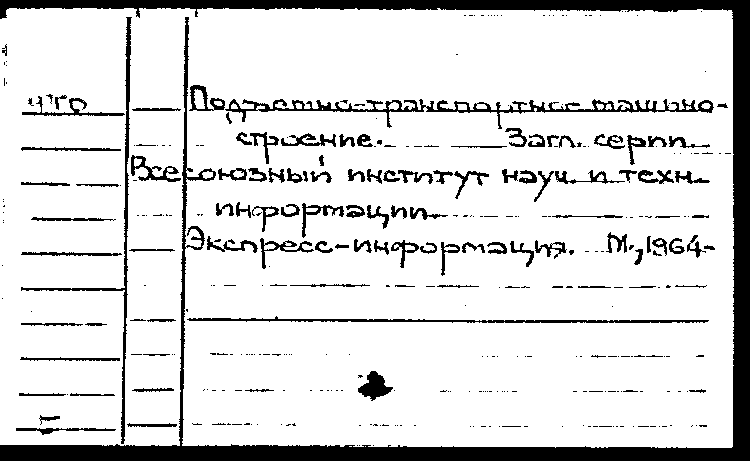 ЧТО Подъемно-транспортное машино-
строение. Загл. серии.
Всесоюзный институт науч. и техн.
информации.
Экспресс-информация. М., 1964-